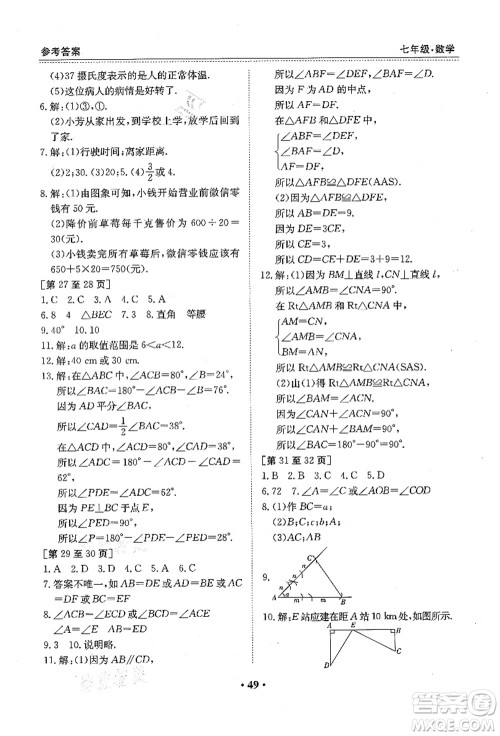 参考答案
七年级·数学
(4)37 摄氏度表示的是人的正常体温.
(5)这位病人的病情是好转了.
6.解:(1)③,①.
(2)小芳从家出发,到学校上学,放学后回到了家.
7.解:(1)行驶时间;离家距离.
(2)2;30.(3)20;5.(4)3/2或4.
8.解:(1)由图象可知,小钱营业前微信零钱有50元.
(2)降价前草莓每千克售价为600÷20=30(元).
(3)小钱卖完所有草莓后,微信零钱应该有650+5×20=750(元).
[第 27 至 28 页]
1.C 2.C 3.A 4.C 5.B
6.8 4 △BEC 7.3 8.直角 等腰
9.40° 10.10
11.解:a的取值范围是6<a<12.
12.解:40 cm 或 30 cm.
13.解:在△ABC 中,
所以∠BAC=180°-B-C=76°.
因为 AD 平分∠BAC,
所以∠CAD=1/2∠BAC=38°.
在△ACD 中,
所以∠ADC=180°-C-∠CAD=78°.
所以∠PDE=∠ADC=78°.
因为 PE⊥BC 于点 E,
所以∠PED=90°.
所以∠P=180°-∠PDE-∠PED=12°.
[第 29 至 30 页]
1.A 2.D 3.D 4.C 5.D 6.A
7.答案不唯一,如 AB=DE 或 AD=BE 或 AC=DF 或 EF=BC
8.∠ACB=∠AFE ∠ABC=∠AEF ∠A=∠A
9.3 10.说明略.
11.解:(1)因为 AB∥DE,
所以∠ABF=∠DEF,∠BAF=∠D.
因为 F 为 AD 的中点,
所以 AF=DF.
在△AFB 和△DFE 中,
∠ABF=∠DEF
∠BAF=∠D
AF=DF.
所以△AFB≌△DFE(AAS).
(2)因为△AFB≌△DFE,
所以 AB=DE=6.
因为 DE=3CE,
所以 CE=2.
所以 CD=CE+DE=2+6=8.
12.解:(1)因为 BM⊥直线 l,CN⊥直线 l,
所以∠AMB=∠CNA=90°.
在 Rt△AMB 和 Rt△CNA 中,
AM=CN,
AB=CA.
所以 Rt△AMB≌Rt△CNA.
(2)由(1)得 Rt△AMB≌Rt△CNA,
所以∠BAM=∠ACN.
所以∠CAN+∠BAM=∠CAN+∠ACN=90°.
所以∠BAC=180°-90°=90°.
[第 31 至 32 页]
1.B 2.C 3.D 4.C 5.D
6.72 7.∠A=∠F
8.(1)作 BC=a;
(2)∠B;∠C;
(3)△ABC.
9.
C
A
B
n
n
m
m
10.解:E 站应建在距 A 站 10 km 处.作图如图.
A
E
B
C
D
·49·